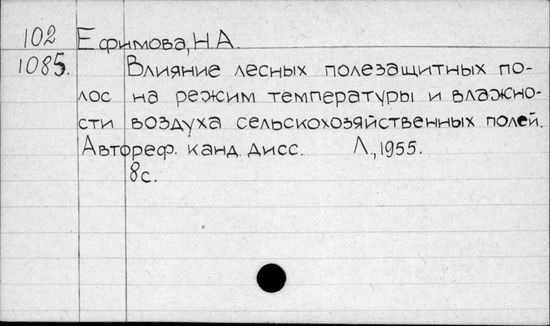 102 Ефимова, Н.А.
1085. Влияние лесных полезащитных по-
лос на режим температуры и влажно-
сти воздуха сельскохозяйственных полей.
Автореф. канд. дисс. Л., 1955.
8с.